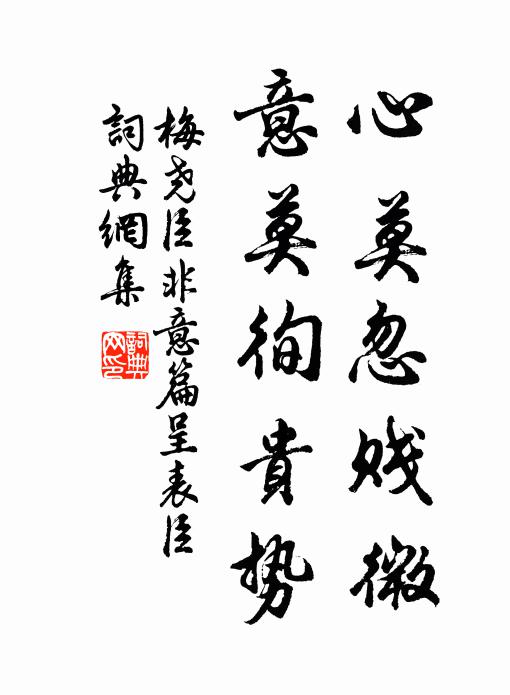 心莫忽贱微
意莫徇貴势
梅尧臣非意篇呈表臣
詞典網集
詞典
网印